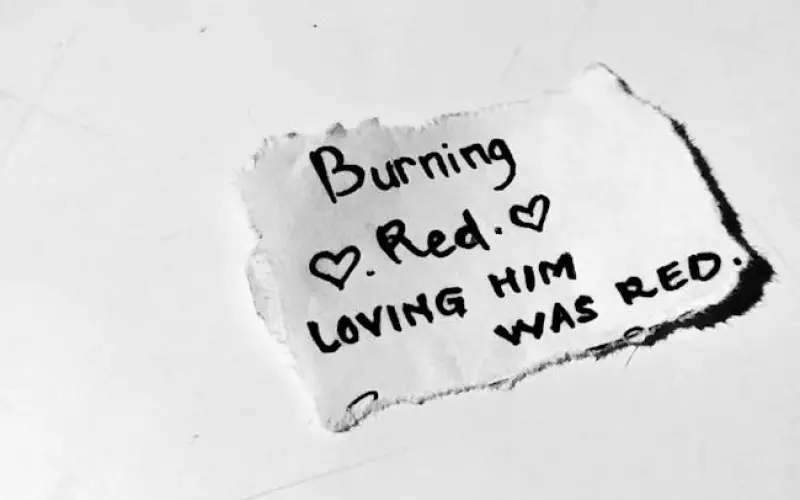 Burning
♡.Red.♡
LOVING HIM
WAS RED.